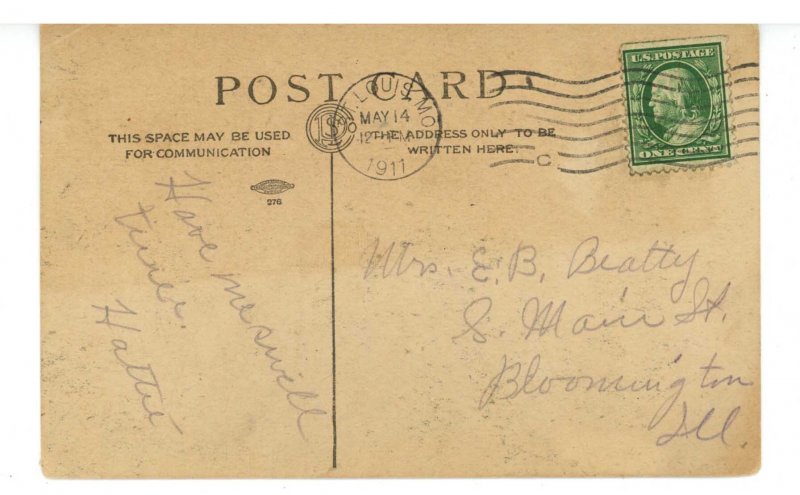 POST CARD
THIS SPACE MAY BE USED
FOR COMMUNICATION
THE ADDRESS ONLY TO BE
WRITTEN HERE.
276
ST. LOUIS, MO.
MAY 14
12
1911
C
U.S.POSTAGE
ONE CENT
Have me swell
time.
Hattie
Mrs. E. B. Beatty
S. Main St.
Bloomington
Ill.